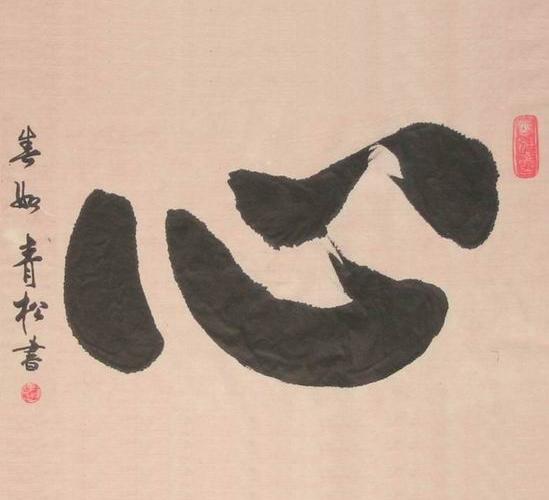 心
春如青松書